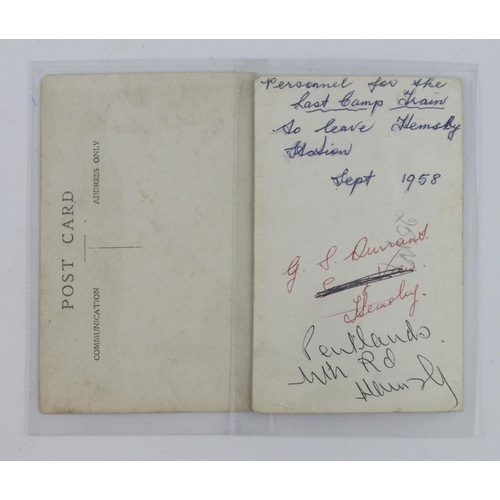 POST CARD
COMMUNICATION
ADDRESS ONLY
Personnel for the
Last Camp Train
to leave Hemsby
Station
Sept 1958
G. S. Durrant.
Hemsby.
Pentlands.
Nth Rd
Hemsby